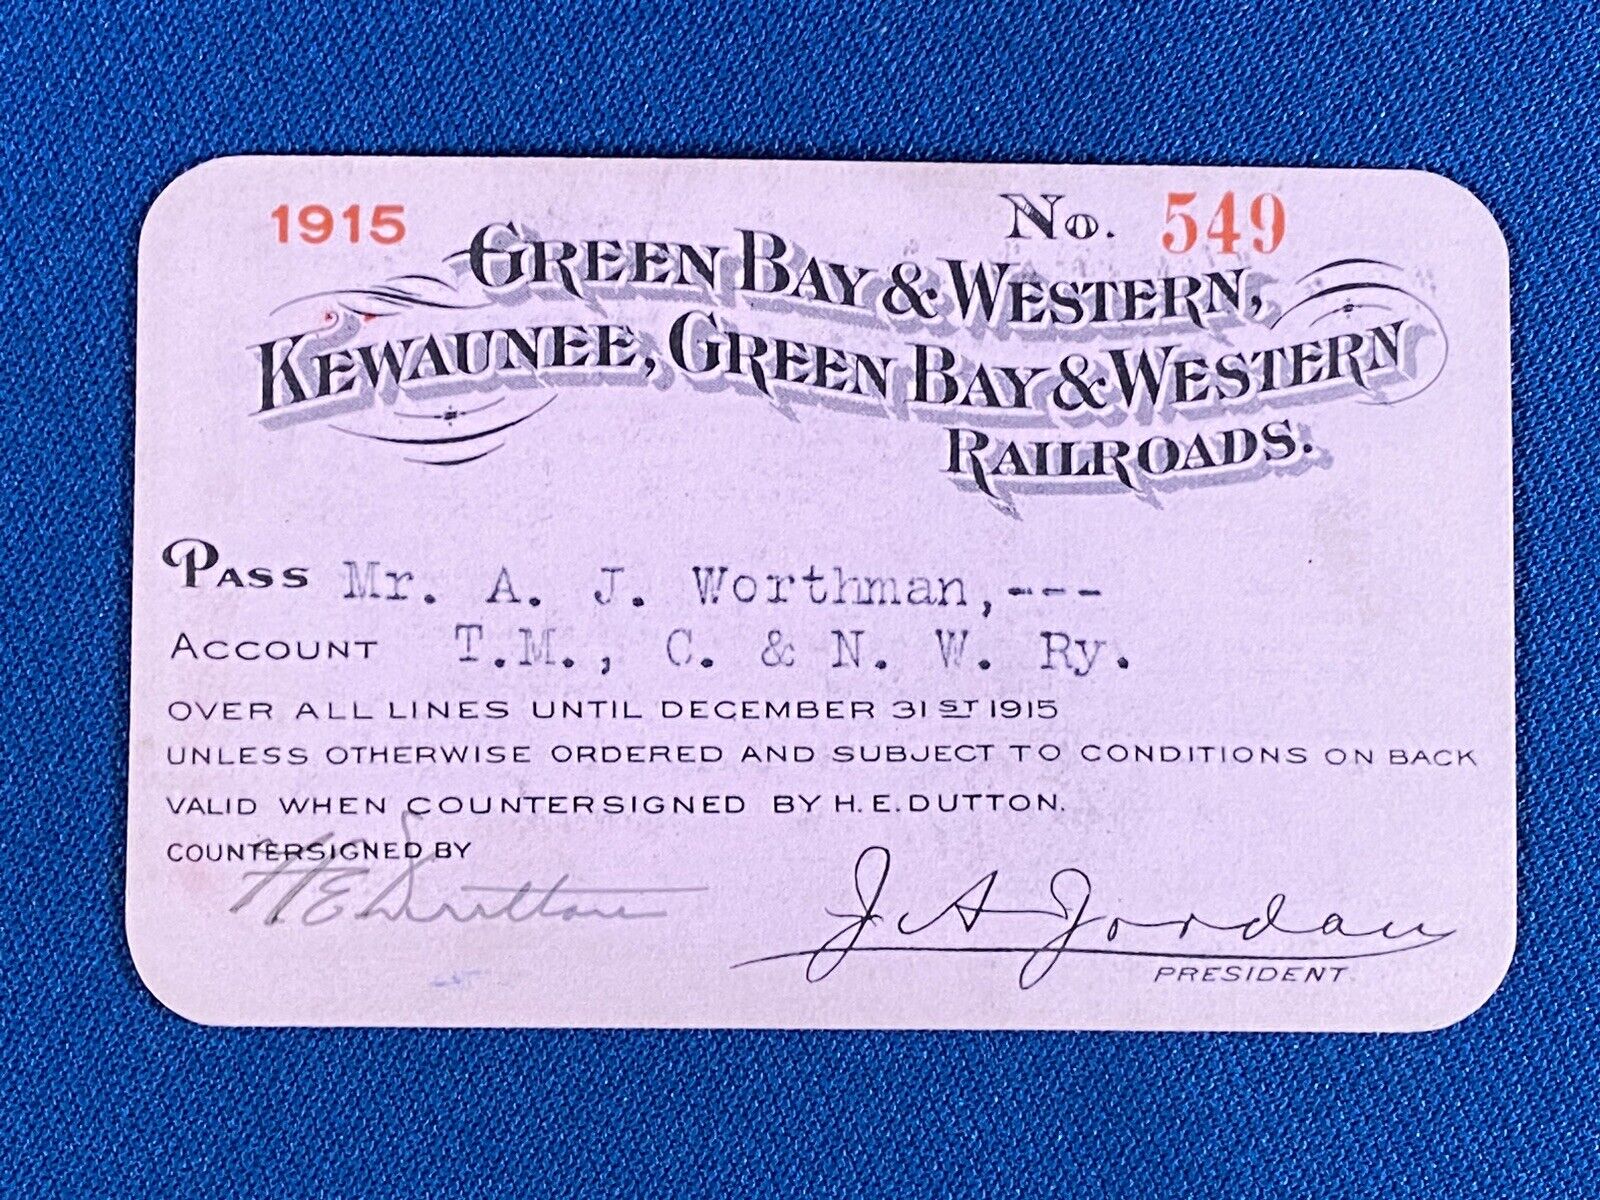 1915 No. 549
GREEN BAY & WESTERN,
KEWAUNEE, GREEN BAY & WESTERN
RAILROADS.
PASS Mr. A. J. Worthman,---
ACCOUNT T.M., C. & N. W. Ry.
OVER ALL LINES UNTIL DECEMBER 31ST 1915
UNLESS OTHERWISE ORDERED AND SUBJECT TO CONDITIONS ON BACK
VALID WHEN COUNTERSIGNED BY H. E. DUTTON.
COUNTERSIGNED BY
H E Dutton
J A Jordan
PRESIDENT.